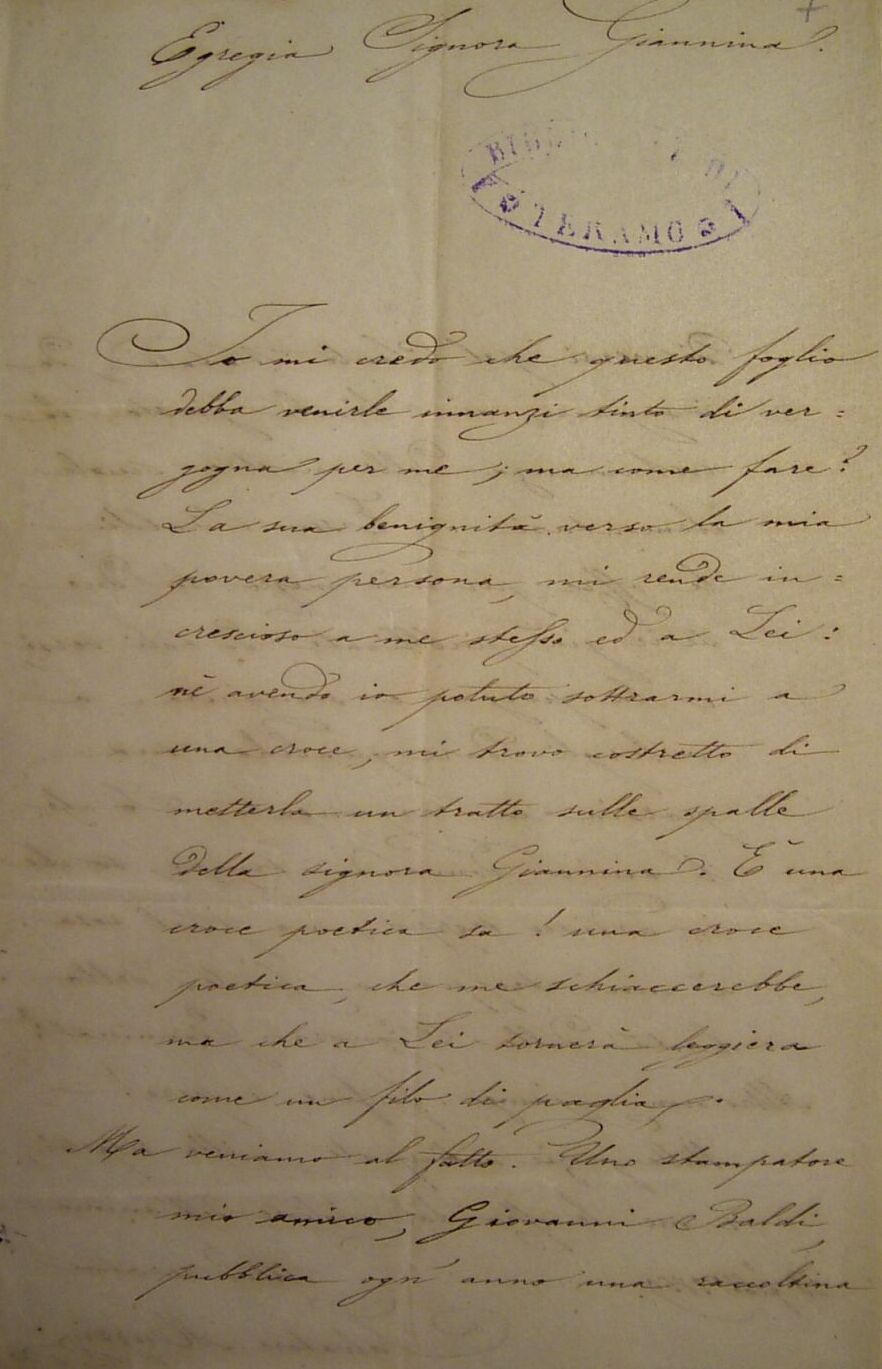 Egregia Signora Giannina.
TERAMO
Io mi credo che questo foglio
debba venirle innanzi tinto di ver=
gogna per me; ma come fare?
La sua benignità verso la mia
povera persona, mi rende in=
crescioso a me stesso ed a Lei:
nè avendo io potuto sottrarmi a
una croce, mi trovo costretto di
metterla un tratto sulle spalle
della signora Giannina. È una
croce poetica sa! una croce
poetica, che me schiaccerebbe,
ma che a Lei tornerà leggiera
come un filo di paglia.
Ma veniamo al fatto. Uno stampatore
mio amico, Giovanni Baldi,
pubblica ogn' anno una raccoltina